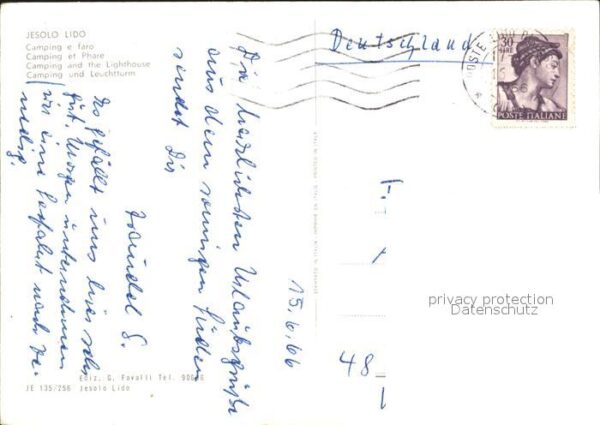 JESOLO LIDO
Camping e faro
Camping et Phare
Camping and the Lighthouse
Camping und Leuchtturm
Die herzlichsten Urlaubsgrüße
aus dem sonnigen Süden
sendet Dir
Traudel S.
Es gefällt uns hier sehr
gut. Morgen unternehmen
wir eine Bootfahrt nach Ve-
nedig.
15.6.66
Deutschland
30
LIRE
POSTE ITALIANE
48
privacy protection
Datenschutz
Ediz. G. Favalli Tel. 90
JE 135/256 Jesolo Lido